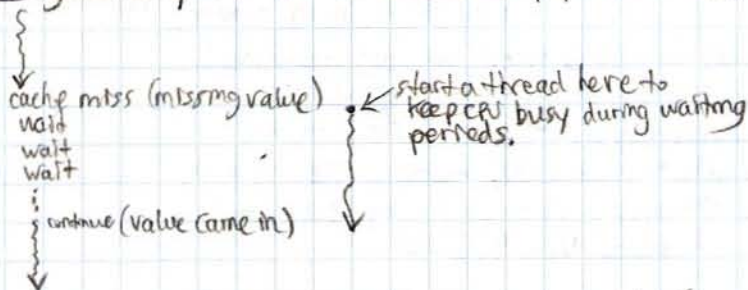 cache miss (missing value)
wait
wait
wait
continue (value came in)
start a thread here to
keep cpu busy during waiting
periods.